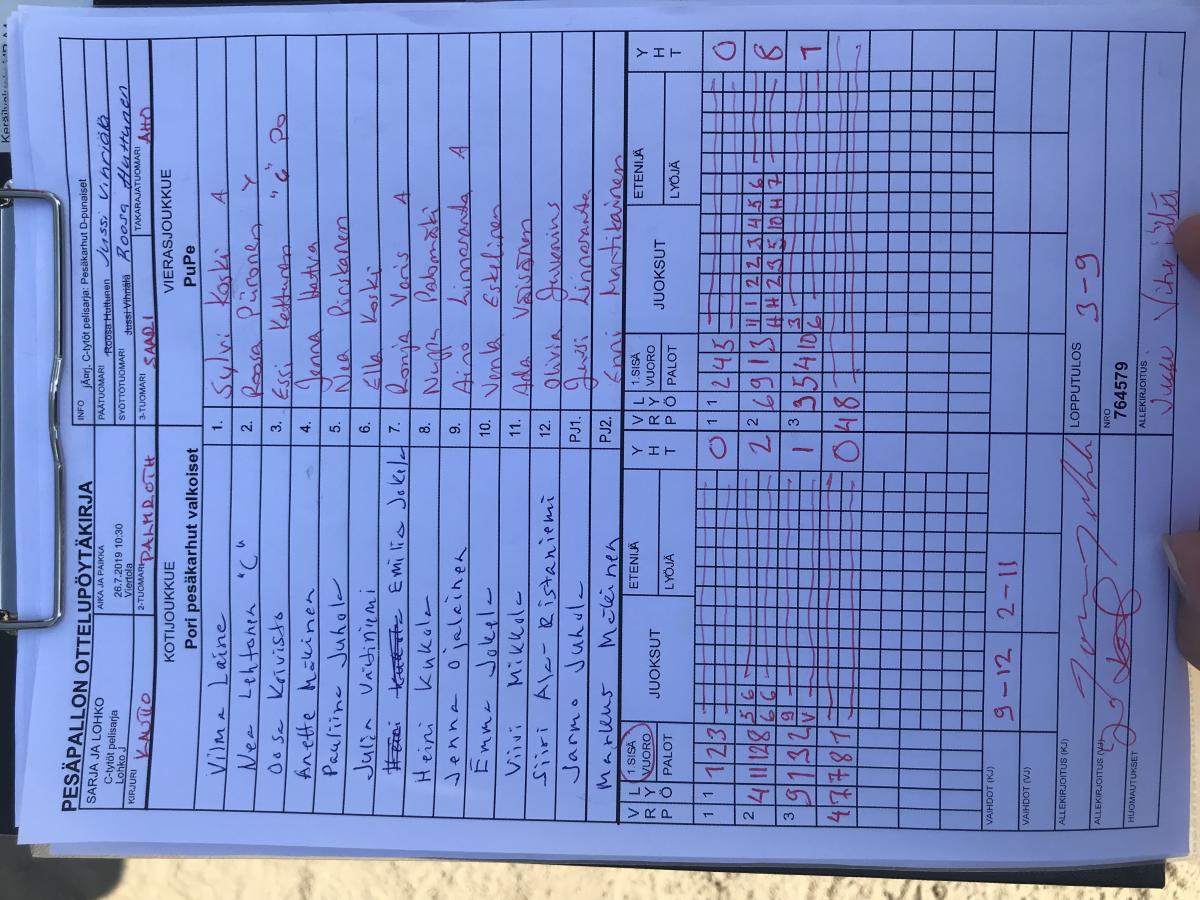 PESÄPALLON OTTELUPÖYTÄKIRJA
SARJA JA LOHKO
C-tytöt pelisarja
Lohko J
AIKA JA PAIKKA
26.7.2019 10:30
Viertola
INFO jÃ¤rj. C-tytöt pelisarja: Pesäkarhut D-punaiset
PÄÄTUOMARI Roosa Huttunen Jussi Vihriälä
SYÖTTÖTUOMARI Jussi Vihriälä Roosa Huttunen
KIRJURI
2-TUOMARI PALMROTH
3-TUOMARI SAARI
TAKARAJATUOMARI AHO
KOTIJOUKKUE
Pori pesäkarhut valkoiset
VIERASJOUKKUE
PuPe
Vilma Laine
1. Sylvi Koski A
Nea Lehtonen "C"
2. Roosa Piironen Y
Oosa Koivisto
3. Essi Kettunen "C" Po
Anette Mäkinen
4. Jenna Hatva
Pauliina Juhola
5. Nea Pirskanen
Julia Väitiniemi
6. Ella Koski
Emilia Jokela
7. Ronja Varis A
Heini Kukkola
8. Nuppu Palomäki
Jenna Ojalainen
9. Aino Linnaranta A
Emma Jokela
10. Venla Eskelinen
Viivi Mikkola
11. Ada Väisänen
Siiri Ala-Ristaniemi
12. Olivia Juvenius
Jarmo Juhola
PJ1. Jendi Linnaranta
Markus Mäkinen
PJ2. Enni Martikainen
V R P L Y Ö 1.SISÄ VUORO PALOT JUOKSUT ETENIJÄ LYÖJÄ Y H T
V R P L Y Ö 1.SISÄ VUORO PALOT JUOKSUT ETENIJÄ LYÖJÄ Y H T
1 1 1 2 3 0
1 1 2 4 5 0
2 4 11 12 8 5 6 2
6 6
2 6 9 1 3 11 1 2 2 3 4 5 6 8
4 4 2 3 5 10 4 7
3 9 1 3 2 9 1
V
3 3 5 4 10 3 1
6
4 7 7 8 1 0
0 4 8
VAIHDOT (KJ) 9-12 2-11
VAIHDOT (VJ)
ALLEKIRJOITUS (KJ)
LOPPUTULOS 3-9
ALLEKIRJOITUS (VJ)
NRO
764579
HUOMAUTUKSET
ALLEKIRJOITUS
Jussi Vihriälä